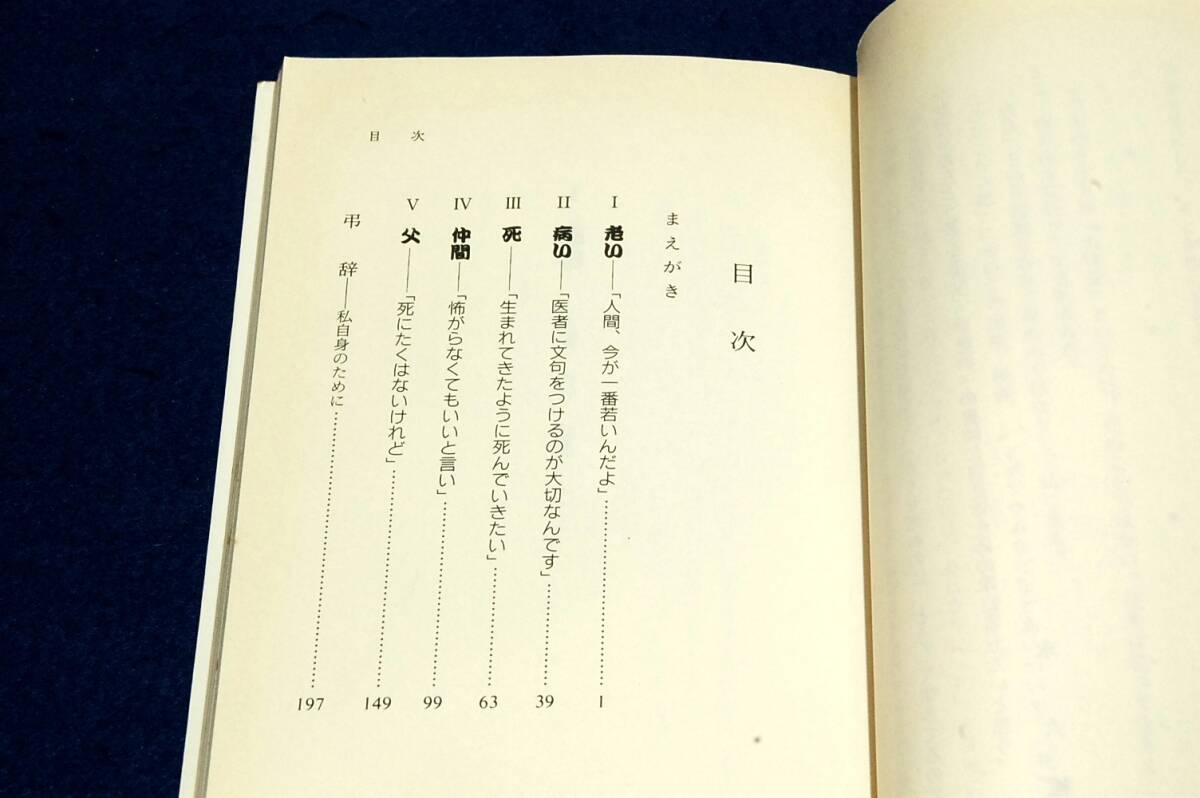 目次
目次
まえがき
I 老い——「人間、今が一番若いんだよ」…………1
II 病い——「医者に文句をつけるのが大切なんです」…………39
III 死——「生まれてきたように死んでいきたい」…………63
IV 仲間——「怖がらなくてもいいと言い」…………99
V 父——「死にたくはないけれど」…………149
弔辞——私自身のために…………197